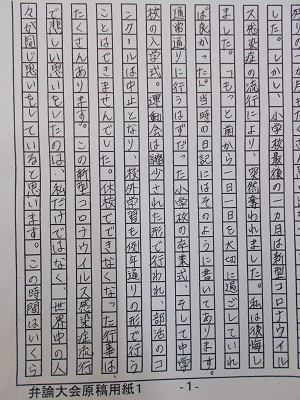 した。しかし、小学校最後の一カ月は新型コロナウイル
ス感染症の流行により、突然奪われました。私は後悔し
ました。「もっと前から一日一日を大切に過ごしていれ
ば良かった」。当時の日記にはそのように書いてあります。
通常通りに行うはずだった小学校の卒業式、そして中学
校の入学式。運動会は縮小された形で行われ、部活のコ
ンクールは中止となり、校外学習も例年通りの形で行う
ことはできませんでした。休校でできなくなった行事は
たくさんあります。この新型コロナウイルス感染症流行
で悲しい思いをしたのは、私だけではなく、世界中の人
々が同じ思いをしていると思います。この時間はいくら
弁論大会原稿用紙1
-1-